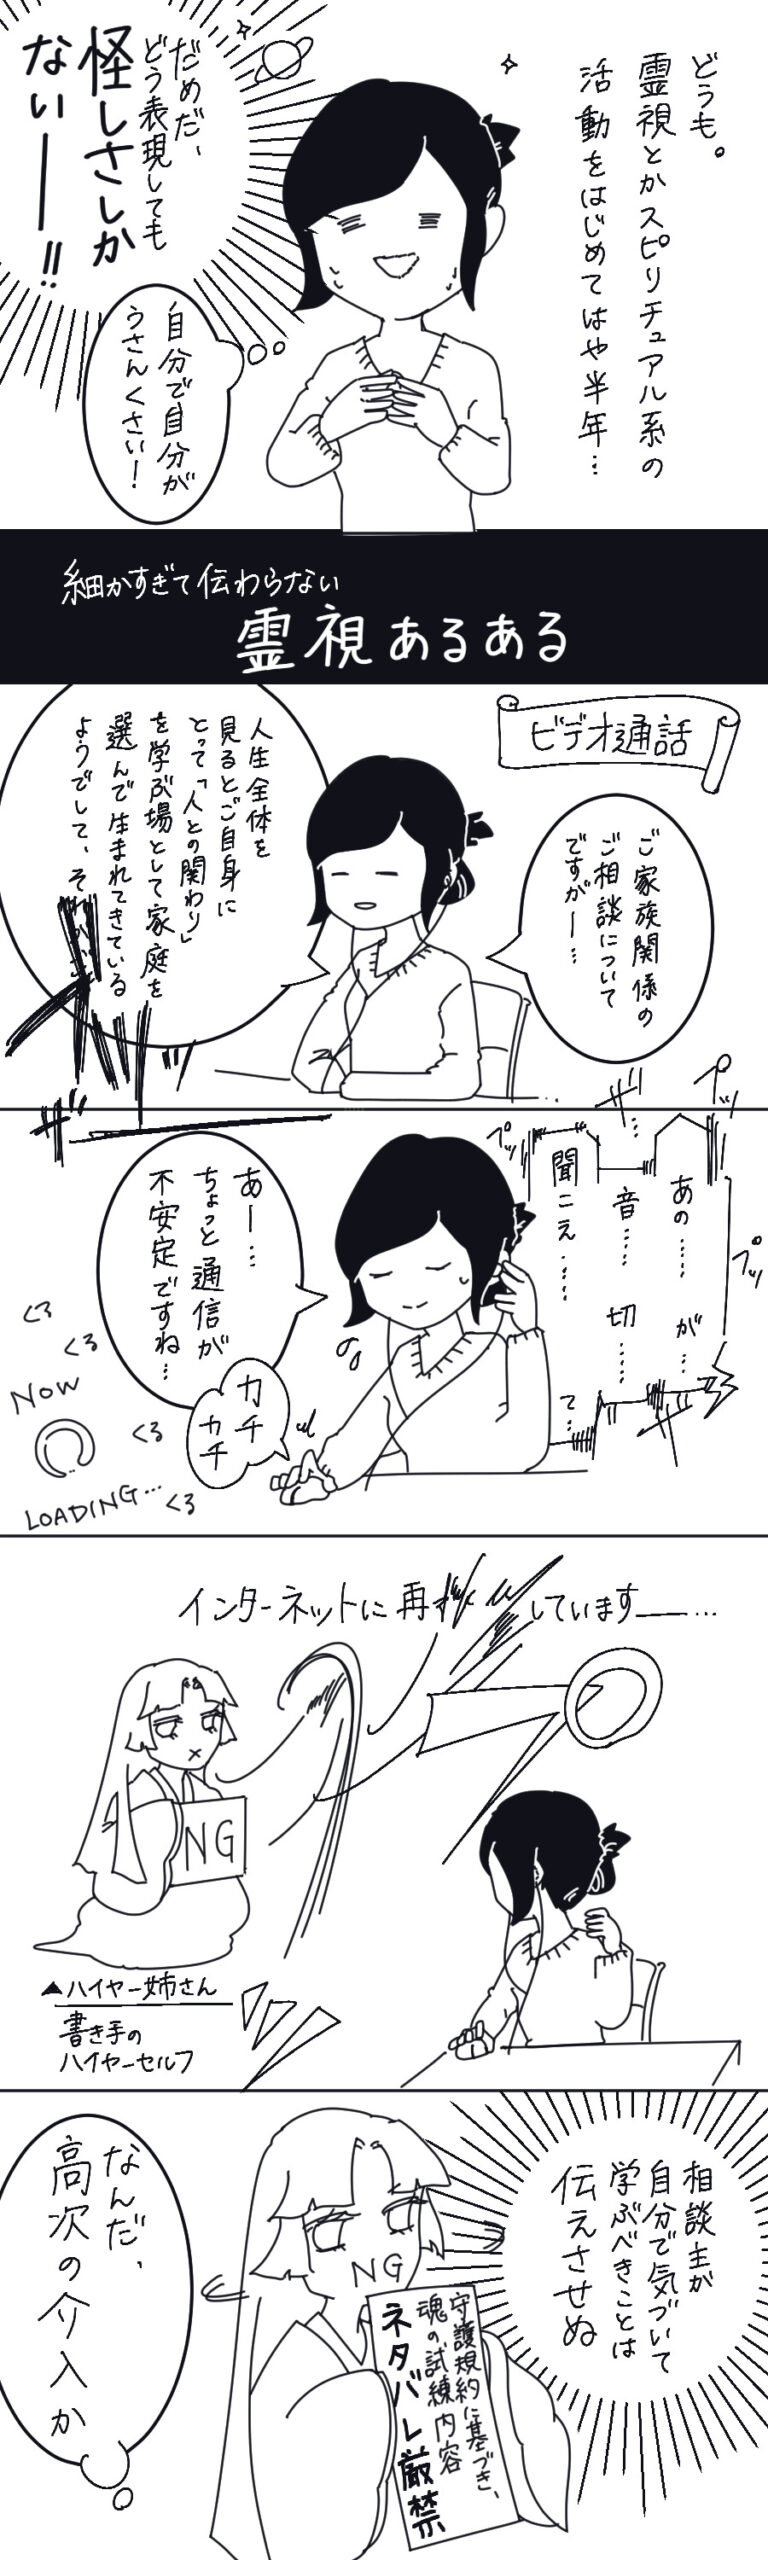 どうも。
霊視とかスピリチュアル系の
活動をはじめてはや半年…
だめだ、
どう表現しても
怪しさしか
ない――!!
自分で自分が
うさんくさい!
細かすぎて伝わらない
霊視あるある
ビデオ通話
ご家族関係の
ご相談について
ですがー…
人生全体を
見るとご自身に
とって「人との関わり」
を学ぶ場として家庭を
選んで生まれてきている
ようでして、それが
ザザ
ザ
プッ
ザ…
プッ
あの……が…
音……切……
聞こえ……て…
プッ
ザ
あー…
ちょっと通信が
不安定ですね…
カチ
カチ
くる
くる
NOW
くる
LOADING…
くる
インターネットに再しています――…
NG
▲ハイヤー姉さん
書き手の
ハイヤーセルフ
相談主が
自分で気づいて
学ぶべきことは
伝えさせぬ
NG
守護規約に基づき、
魂の試練内容
ネタバレ厳禁
なんだ、
高次の介入か